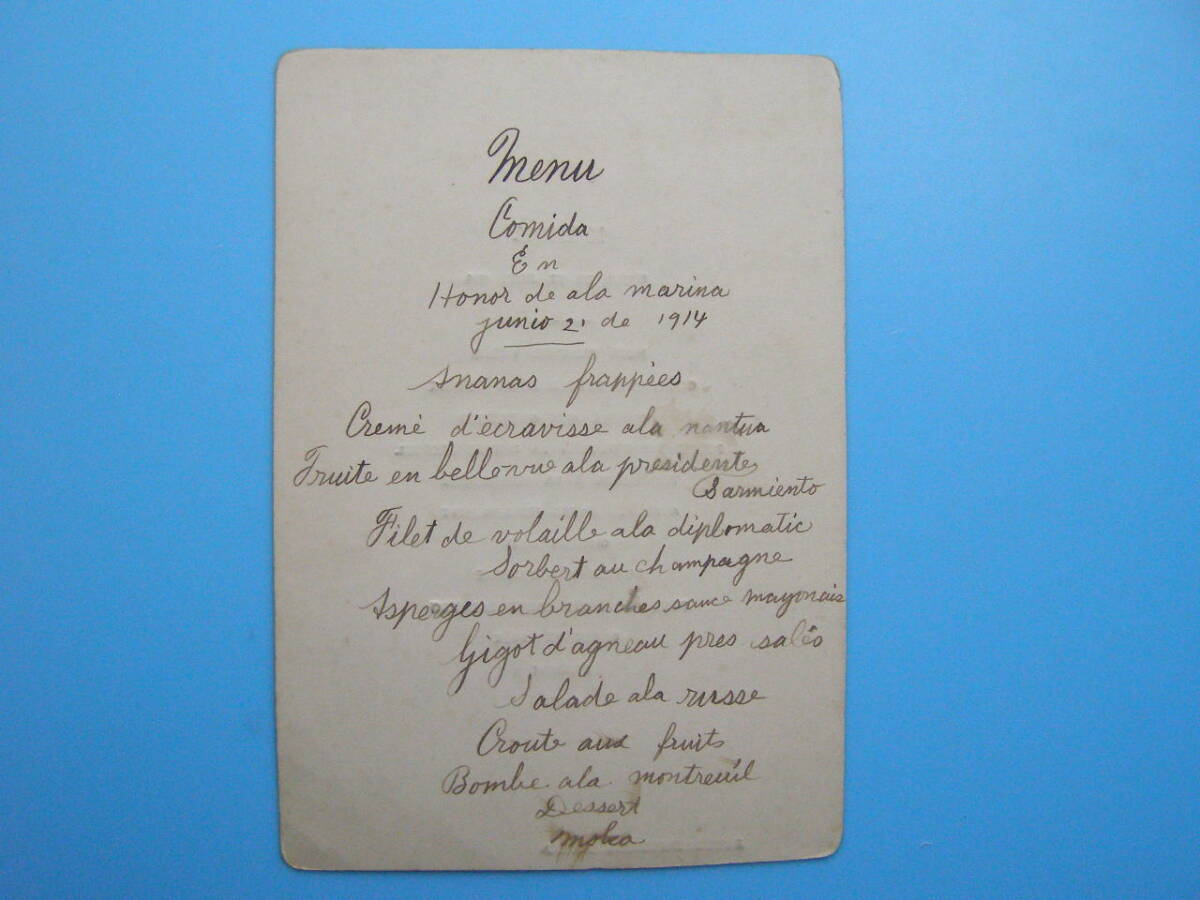 Menu
Comida
En
Honor de ala marina
junio 21 de 1914
Ananas frappées
Cremé d'écravisse ala nantua
Truite en bellevue ala presidente
Sarmiento
Filet de volaille ala diplomatic
Sorbert au champagne
Asperges en branches sauce mayonais
Gigot d'agneau pres salés
Salade ala russe
Croute aux fruits
Bombe ala montreuil
Dessert
moka